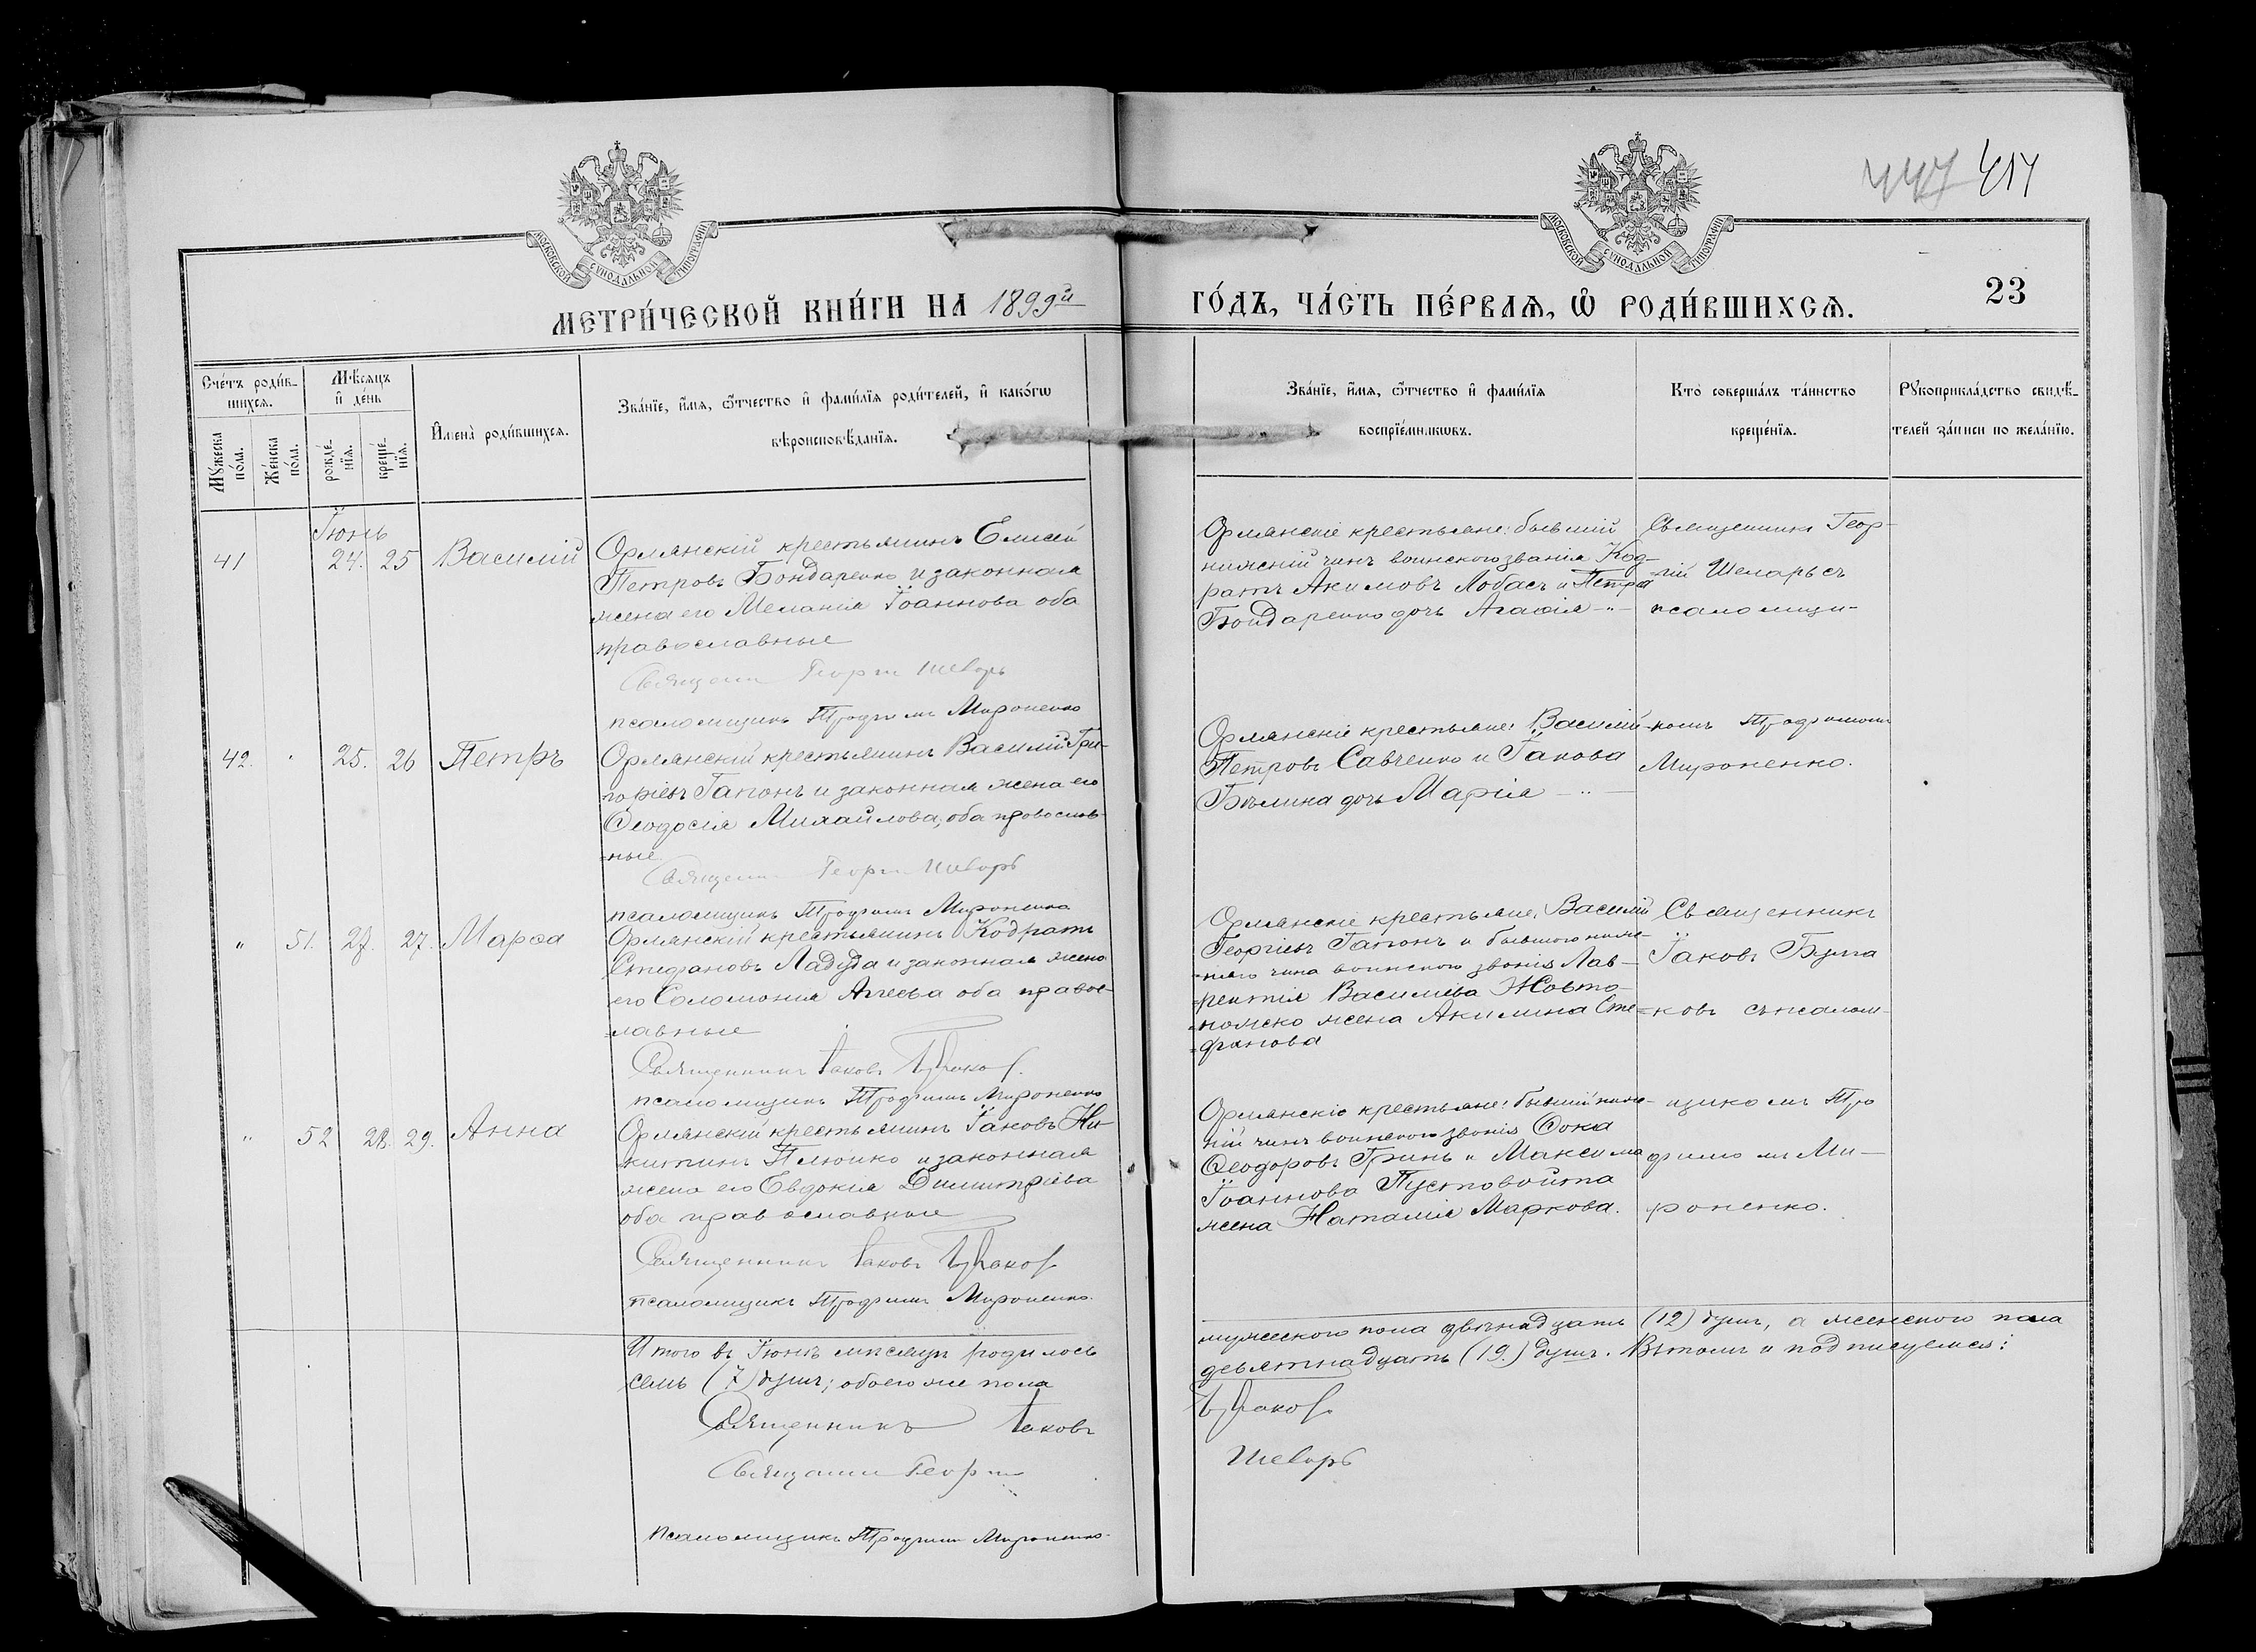 447 414
МОСКОВСКОЙ СУНОДАЛЬНОЙ ТИПОГРАФИИ
МОСКОВСКОЙ СУНОДАЛЬНОЙ ТИПОГРАФИИ
МЕТРИ́ЧЕСКОЙ КНИ́ГИ НА 1899й ГО́ДЪ, ЧА́СТЬ ПЕ́РВАѦ, Ѡ҆ РОДИ́ВШИХСѦ. 23
Сче́тъ роди́в-
шихсѧ.
Мѣ́сѧцъ
и҆ де́нь
Мꙋ́жеска
по́ла.
Же́нска
по́ла.
рожде́-
нїѧ.
креще́-
нїѧ.
И҆мена̀ роди́вшихсѧ.
Зва́нїе, и҆́мѧ, ѻ҆́тчество и҆ фами́лїѧ роди́телей, и҆ како́гѡ
вѣроисповѣ́данїѧ.
Зва́нїе, и҆́мѧ, ѻ҆́тчество и҆ фами́лїѧ
воспрїе́мникѡвъ.
Кто̀ соверша́лъ та́инство
креще́нїѧ.
Рꙋкоприкла́дство свидѣ́-
телей за́писи по жела́нїю.
Іюнь
41 24. 25 Василій
Орлянскій крестьянинъ Елисей
Петровъ Бондаренко и законная
жена его Меланія Іоаннова оба
православные
Священ Георгій Шеларь
псаломщикъ Трофимъ Мироненко
Орлянскіе крестьяне: бывшій
нижній чинъ воинского званія Код-
ратъ Акимовъ Лобасъ и Петра
Бондаренко дочь Агафія
Священникъ Геор-
гій Шеларь съ
псаломщи-
42. 25. 26 Петръ
Орлянскій крестьянинъ Василій Гри-
горіевъ Гапонъ и законная жена его
Ѳеодосія Михайлова, оба православ-
=ные
Священ Георгій Шеларь
псаломщикъ Трофимъ Мироненко
Орлянскіе крестьяне: Василій
Петровъ Савченко и Іакова
Бѣлика дочь Марія
-комъ Трофимомъ
Мироненко.
" 51. 27. 27. Марѳа
Орлянскій крестьянинъ Кодратъ
Стефановъ Ладуда и законная жена
его Соломонія Агеева оба правос-
=лавные
Священникъ Іаковъ Булаков
псаломщикъ Трофимъ Мироненко
Орлянскіе крестьяне: Василій
Георгіевъ Гапонъ и бывшого ниж-
=няго чина воинского званія Лав-
=рентія Василіева Жовто-
=ножско жена Акилина Сте-
=фанова
Священникъ
Іаковъ Була
=ковъ съ псалом-
" 52 28. 29. Анна
Орлянскій крестьянинъ Іаковъ Ни-
китинъ Плюйко и законная
жена его Евдокія Димитріева
оба православные
Священникъ Іаковъ Булаков
псаломщикъ Трофимъ Мироненко.
Орлянскіе крестьяне: бывшій ниж-
ній чинъ воинского званія Ѳока
Ѳеодоровъ Гринь и Максима
Іоаннова Пустовойта
жена Наталія Маркова.
щикомъ Тро
фимомъ Ми-
роненко.
Итого въ Іюнѣ мѣсяцѣ родилось
семь (7) душъ; обоего же пола
мужеского пола двѣнадцать (12) душъ, а женского пола
девятнадцать (19.) душъ. Вѣтомъ и подписуемся:
Священникъ Іаковъ Булаков
Священ Георгій Шеларь
Псаломщикъ Трофимъ Мироненко.